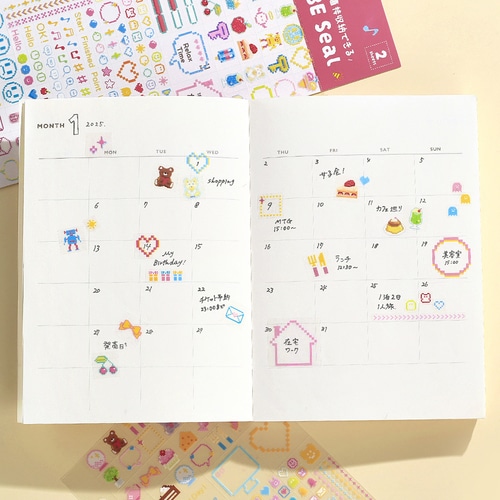 枠収納できる♪
BE Seal
2
Hello
Hello
OK!
Start
Finished
Relax Time
MONTH 1 2025.
MON TUE WED
THU FRI SAT SUN
1
shopping
2 3 4 5
女子会!
6 7 8
9 10 11 12
MTG
15:00~
カフェ巡り
13 14 15
My
Birthday!
16 17 18 19
ランチ
12:30~
美容室
15:00
20 21 22
チケット予約
23:00まで
23 24 25 26
1泊2日
1人旅
27 28 29
発売日!
30 31
在宅
ワーク